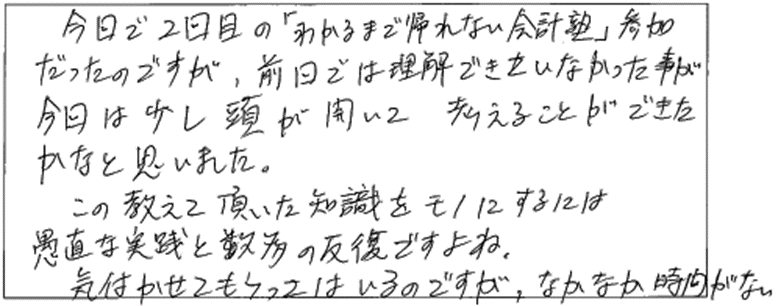 今日で2回目の「わかるまで帰れない会計塾」参加
だったのですが、前回では理解できていなかった事が
今回は少し頭が開いて 考えることができた
かなと思いました。
この教えて頂いた知識をモノにするには
愚直な実践と数多の反復ですよね。
気付かせてもらってはいるのですが、なかなか時間がない